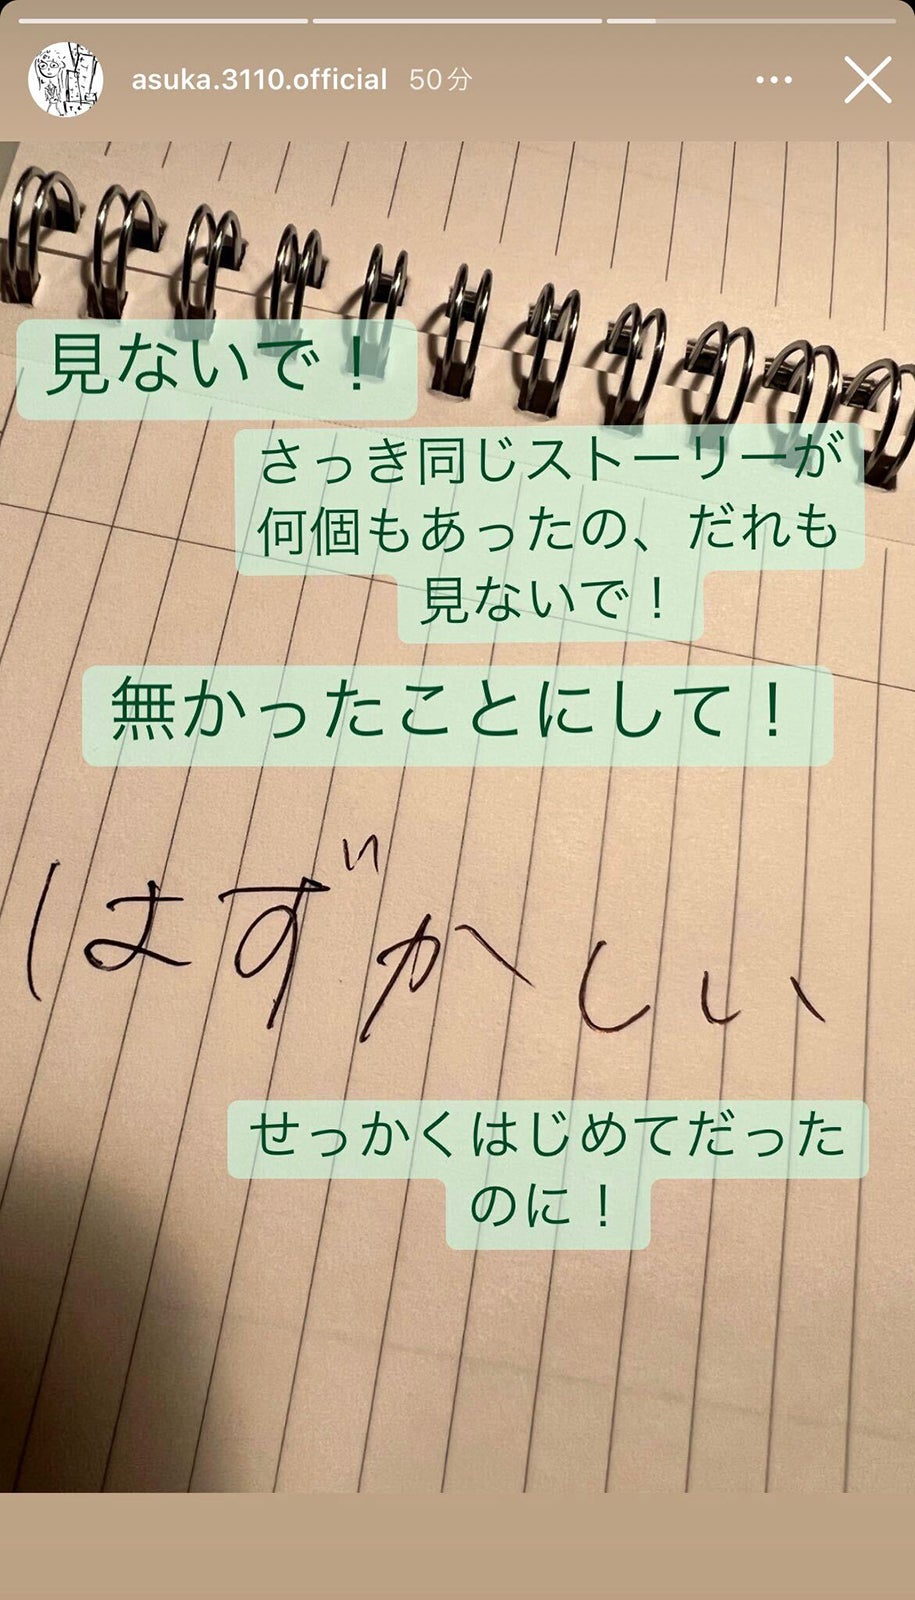 asuka.3110.official 50分
見ないで！
さっき同じストーリーが
何個もあったの、だれも
見ないで！
無かったことにして！
はずかしい
せっかくはじめてだった
のに！